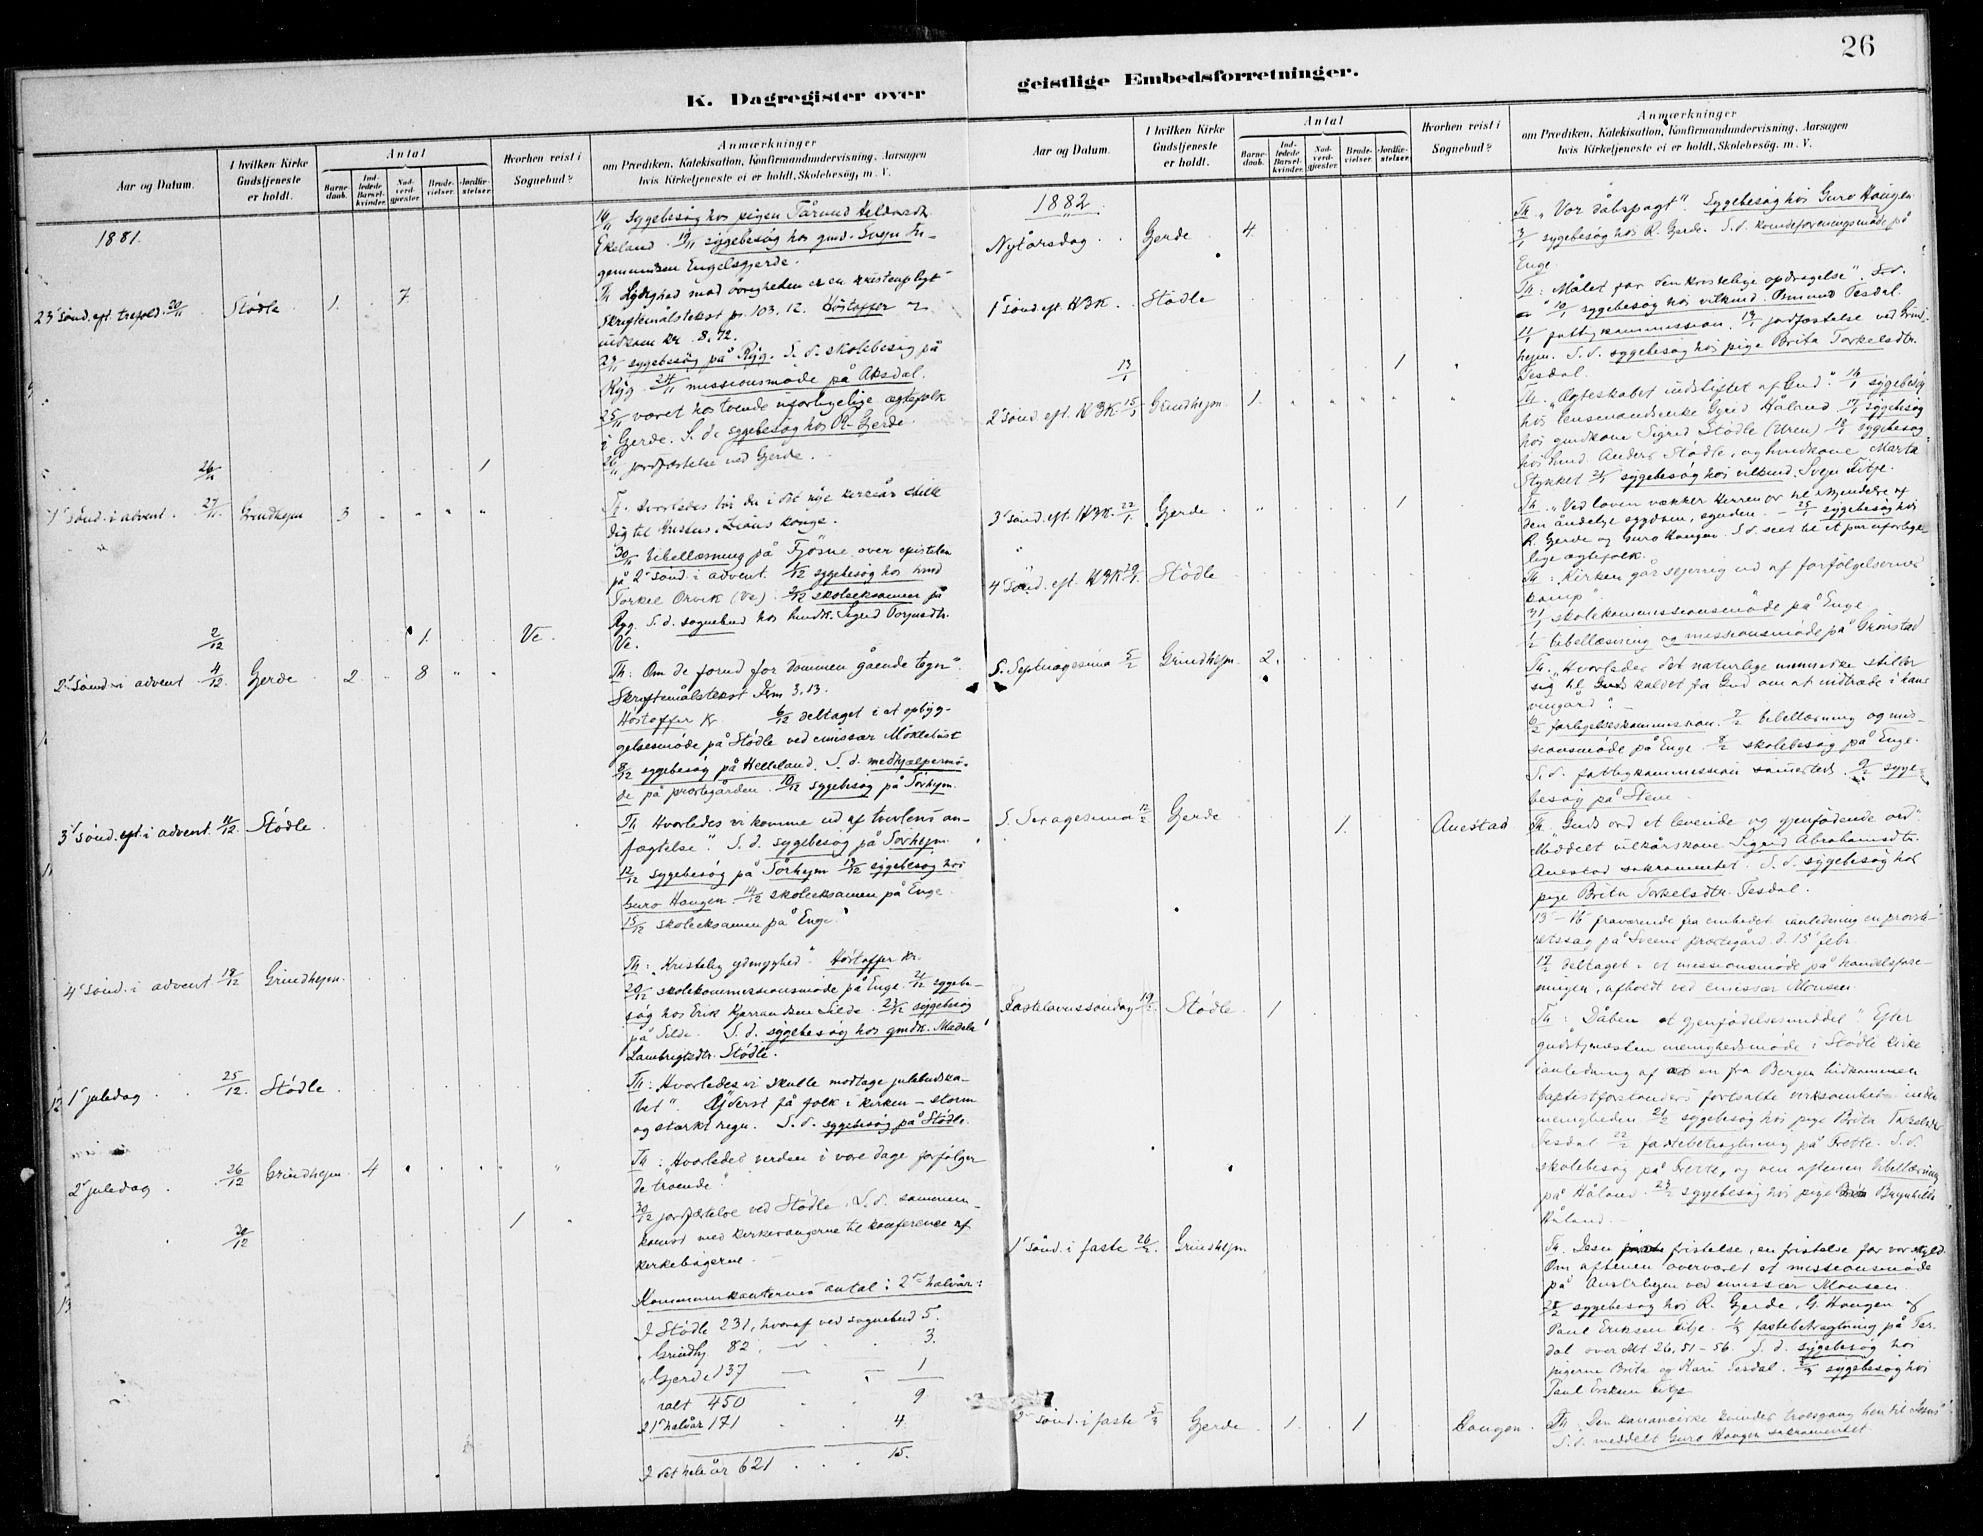 26
K. Dagregister over
geistlige Embedsforretninger.
Aar og Datum.
I hvilken Kirke
Gudstjeneste
er holdt.
Antal
Barne-
daab.
Ind-
ledede
Barsel-
kvinder.
Nad-
verd-
gjæster.
Brude-
vielser.
Jordfæ-
stelser.
Hvorhen reist i
Sognebud?
Anmærkninger
om Prædiken, Katekisation, Konfirmandundervisning, Aarsagen
hvis Kirketjeneste ei er holdt, Skolebesøg, m. V.
1881.
16/11 Sygebesøg hos pigen
Ekeland. 19/11 sygebesøg hos gmd. Svejn In-
gemundsen Engelsgjerde.
23' sønd. eft. trefold. 20/11 Stødle 1. 7
Th Lydighed mod øvrigheden er en kristenpligt
Skriftemålstekst ps. 103, 12. Høstoffer
indkom kr. 8,72.
23/11 sygebesøg på Ryg. S. d. skolebesøg på
Ryg. 24/11 missionsmøde på Aksdal.
25/11 været hos tvende uforligelige ægtefolk
i Gjerde. S. d. sygebesøg hos R. Gjerde.
26/11 1
26/11 jordfæstelse ved Gjerde.
1' sønd. i advent. 27/11 Grindhejm 3
Th. Hvorledes bør du i det nye kirkeår stille
dig til Kristus, Zions konge.
30/11 bibellæsning på Fjøsne over epistelen
på 2' sønd. i advent. 1/12 sygebesøg hos hmd
Torkel Orvik (Ve). 2/12 skoleeksamen på
Ryg. S. d. sognebud hos husk. Sigrid Tormodtr.
Ve.
2/12 1. Ve.
2' sønd. i advent 4/12 Gjerde 2. 8
Th: Om de forud for dommen gående tegn".
Skriftemålstekst 3, 13.
Høstoffer Kr 6/12 deltaget i et opbyg-
gelsesmøde på Stødle ved emissær Moklebust
8/12 sygebesøg på Helleland. S. d. medhjælpermø-
de på præstegården. 10/12 sygebesøg på Sørhejm.
3' sønd. eft. i advent. 11/12 Stødle
Th Hvorledes vi komme ud af tvivlens an-
fægtelse". S. d. sygebesøg på Sørhejm.
12/12 sygebesøg på Sørhejm 13/12 sygebesøg hos
Guro Haugen. 14/12 skoleeksamen på Enge.
15/12 skoleeksamen på Enge.
4' sønd. i advent 18/12 Grindhejm.
Th: "Kristelig ydmyghed" Høstoffer kr.
20/12 skolekommissionsmøde på Enge. 21/12 sygebe-
søg hos Erik Silde. 23/12 sygebesøg
på Silde. S. d. sygebesøg hos gmdk. Madela
Lambrigtsdtr. Stødle.
1' juledag 25/12 Stødle
Th: Hvorledes vi skulle modtage julebudska-
bet". Yderst få folk i kirken – storm
og stærkt regn. S. d. sygebesøg på Stødle.
2' juledag 26/12 Grindhejm. 4
Th: "Hvorledes verden i vore dage forfølger
de troende".
30/12 1
30/12 jordfæstelse ved Stødle. S. d. sammen-
komst med kirkesangerne til konference af
kirkebøgerne.
Kommunikanternes antal i 2' halvår:
I Stødle 231, hvoraf ved sognebud 5.
" Grindhj 82. 3.
" Gjerde 137 1
ialt 450 9
I 1' halvår 171 4.
I det hele år 621 15.
Aar og Datum.
I hvilken Kirke
Gudstjeneste
er holdt.
Antal
Barne-
daab.
Ind-
ledede
Barsel-
kvinder.
Nad-
verd-
gjæster.
Brude-
vielser.
Jordfæ-
stelser.
Hvorhen reist i
Sognebud?
Anmærkninger
om Prædiken, Katekisation, Konfirmandundervisning, Aarsagen
hvis Kirketjeneste ei er holdt, Skolebesøg, m. V.
1882
Nytårsdag Gjerde 4.
Th. "Vor dåbspagt". Sygebesøg hos Guro Haugen
3/1 sygebesøg hos R. Gjerde. S. d. kvindeforeningsmøde på
Enge.
1' sønd. eft. H3K. Stødle
Th: "Målet for den kristelige opdragelse". S. d.
10/1 sygebesøg hos Tesdal.
11/1 fattigkommission. 13/1 jordfæstelse ved Grind-
hejm. S. d. sygebesøg hos pige Brita Torkelsdtr.
Tesdal.
13/1 1
2' sønd. eft. H3K. 15/1 Grindhejm. 1.
Th. "Ægteskabet indstiftet af Gud". 16/1 sygebesøg
hos lensmandsenke Gyrid Håland 17/1 sygebesøg
hos gmdkone Sigrid Stødle (Uren) 18/1 sygebesøg
hos Anders Stødle, og husdkone Marta
Stykket 21/1 sygebesøg hos Svejn Silje.
3' sønd. eft. H3K. 22/1 Gjerde 1
Th. "Ved loven vækker Herren os til erkjendelse af
den åndelige sygdom, synden. – 25/1 sygebesøg hos
R. Gjerde og Guro Haugen. S. d. til et par uforlige-
lige ægtefolk.
4' sønd. eft. H3K 29/1. Stødle
Th: "Kirken går sejerrig ud af forfølgelsernes
kamp".
31/1 skolekommissionsmøde på Enge
1/2 bibellæsning og missionsmøde på Grønstad
S. Septuagesima 5/2 Grindhejm. 2.
Th. "Hvorledes det naturlige menneske stiller
sig til kaldet fra Gud om at indtræde i hans
vingård".
6/2 forligelseskommission. 7/2 bibellæsning og mis-
sionsmøde på Enge. 8/2 skolebesøg på Enge.
S. d. fattigkommission samesteds. 9/2 syge-
besøg på Stene.
S. Sexagesima 12/2 Gjerde 1. Anestad
Th. "Guds ord et levende og gjenfødende ord"
Meddelt vilkårskone Sigrid Abrahamsdtr.
Anestad sakramentet. S. d. sygebesøg hos
pige Brita Torkelsdtr. Tesdal.
13–16 fraværende fra embedet i anledning en provste-
retssag på præstegård d. 15' febr
17/2 deltaget i et missionsmøde på handelsfore-
ningen, afholdt ved emissær Monsen.
Fastelavnssøndag 19/2. Stødle 1
Th: "Dåben et gjenfødelsesmiddel" Efter
gudstjenesten menighedsmøde i Stødle kirke
i anledning af en fra Bergen hidkommen
baptistforstanders fortsatte virksomhed inden
menigheden 21/2 sygebesøg hos pige Brita Torkelsdtr
Tesdal 22/2 fastebetragtning på Frette. S. d.
skolebesøg på Frette, og om aftenen bibellæsning
på Håland. 23/2 sygebesøg hos pige Brynhilde
Håland. –
1' sønd. i faste 26/2. Grindhejm.
Th. Jesu fristelse, en fristelse for vor skyld.
Om aftenen overværet et missionsmøde
på Austrhejm ved emissær Monsen.
28/2 sygebesøg hos R. Gjerde, G. Haugen &
Paul Eriksen Silje. 1/3 fastebetragtning på Tes-
dal over Mt 26, 51–56. S. d. sygebesøg hos
pigerne Brita og Kari Tesdal. sygebesøg hos
Paul Eriksen Silje
2' sønd. i faste 5/3 Gjerde 1. 1 Haugen.
Th. "Den kananæiske kvindes troesgang hen til Jesus"
S. d. meddelt Guro Haugen sakramentet